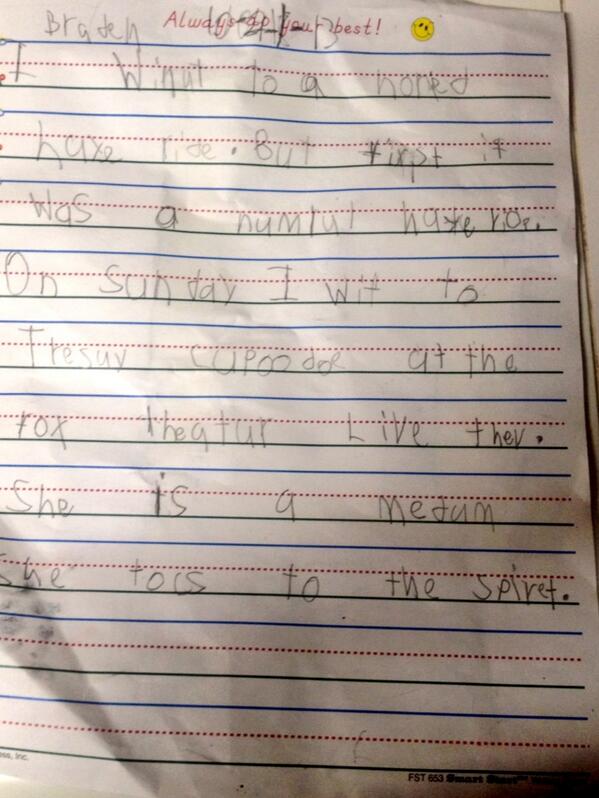 Always do your best!
Braden 10-21-13
I Wint to a honted
haxe ride. But firpt it
was a numlul haxe ride.
On Sunday I wit to
Tresuv cupoodoe at the
fox theatur Live thev.
She is a medum
She tocs to the spiret.
ess, Inc.
FST 653 Smart Start™